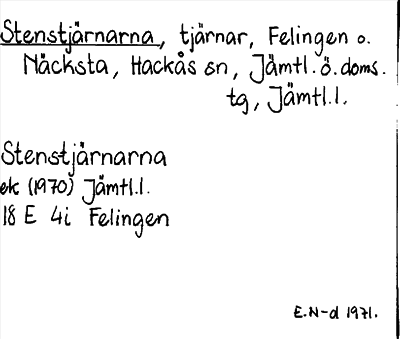 Stenstjärnarna, tjärnar, Felingen o.
Näcksta, Hackås sn, Jämtl.ö.doms.
tg, Jämtl.l.
Stenstjärnarna
ek (1970) Jämtl.l.
18 E 4i Felingen
E.N-d 1971.